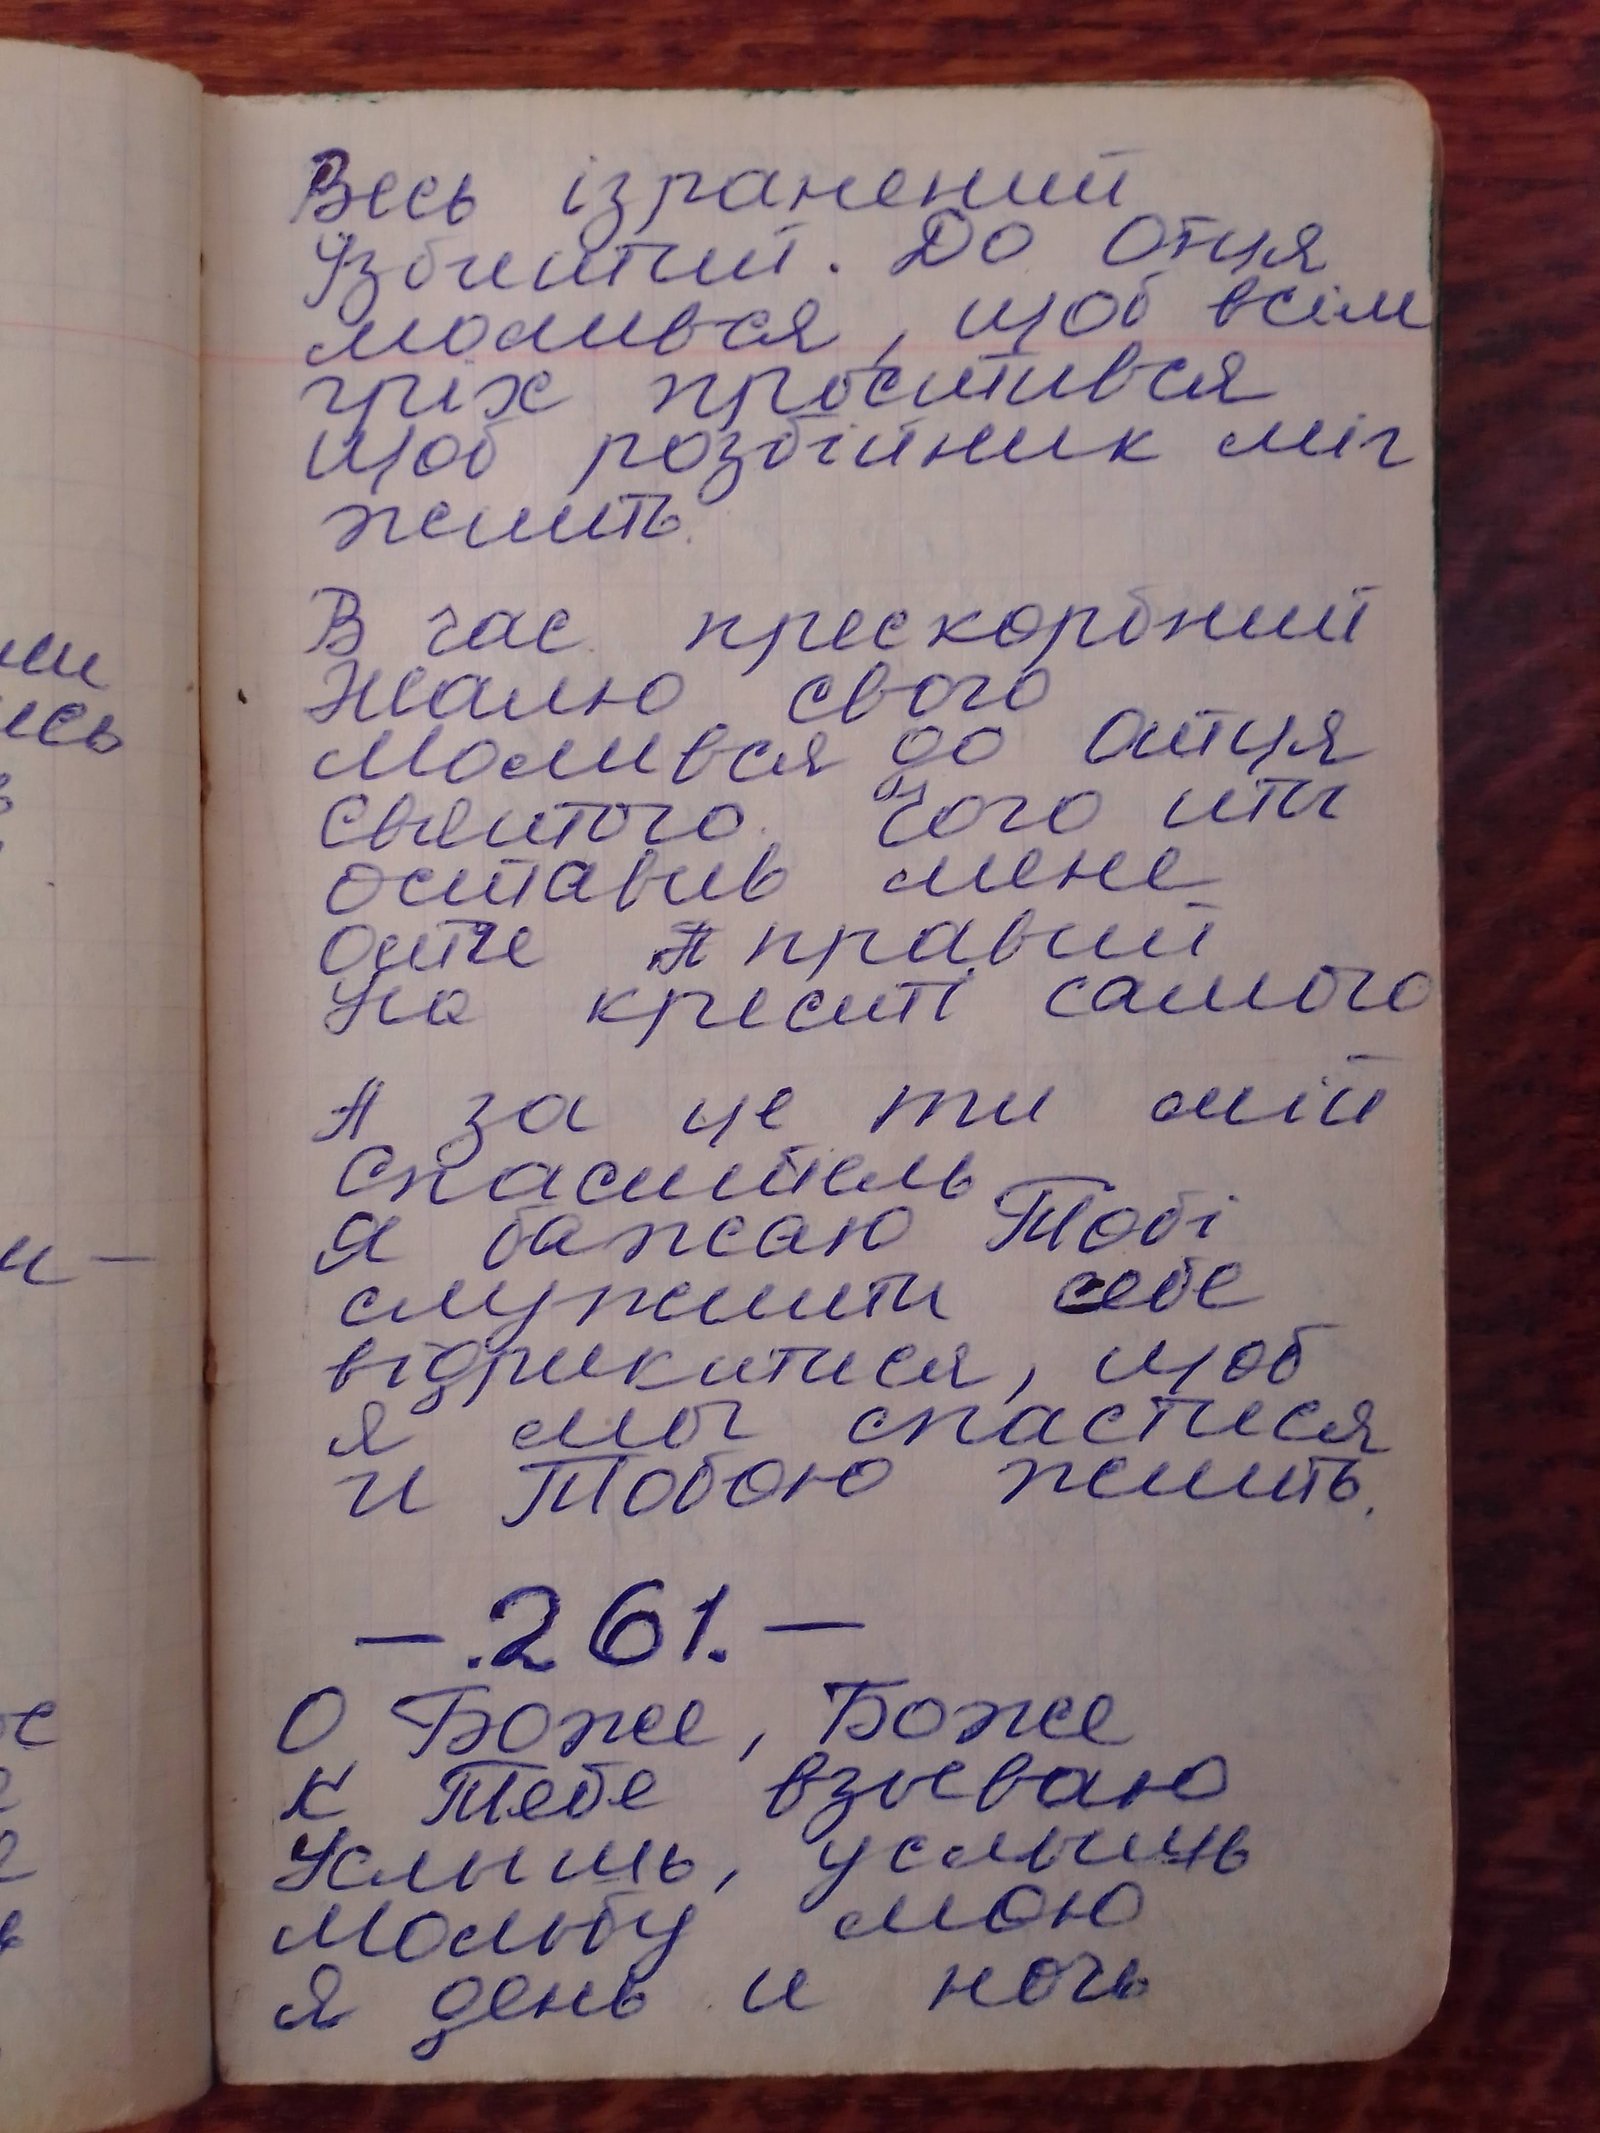 Весь ізранений
Узбитий. До Отця
молився, щоб всім
гріх простився
щоб розбійник міг
жить.
В час прескорбний
Жалю свого
Молився до Отця
святого. Чого ти
оставив мене
отче правий
На кресті самого
А за це ти мій
Спаситель
Я бажаю Тобі
служити себе
відрикатися, щоб
я мог спастися
и Тобою жить.
-.261.-
О Боже, Боже
К Тебе взываю
Услышь, услышь
Мольбу мою
я день и ночь